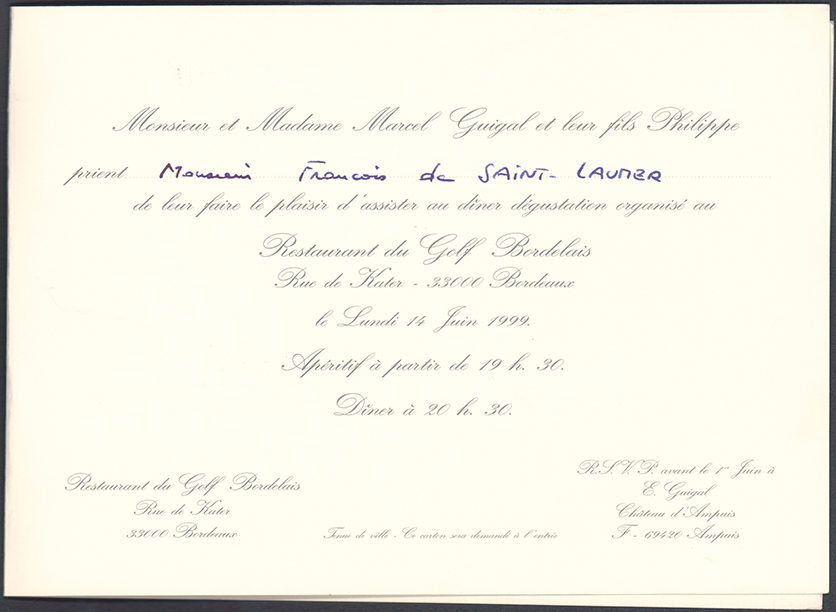 Monsieur et Madame Marcel Guigal et leur fils Philippe
prient Monsieur Francois de SAINT-LAUMER
de leur faire le plaisir d'assister au dîner dégustation organisé au
Restaurant du Golf Bordelais
Rue de Kater - 33000 Bordeaux
le Lundi 14 Juin 1999.
Apéritif à partir de 19 h. 30.
Dîner à 20 h. 30.
Restaurant du Golf Bordelais
Rue de Kater
33000 Bordeaux
Tenue de ville - Ce carton sera demandé à l'entrée
R.S.V.P. avant le 1er Juin à
E. Guigal
Château d'Ampuis
F - 69420 Ampuis